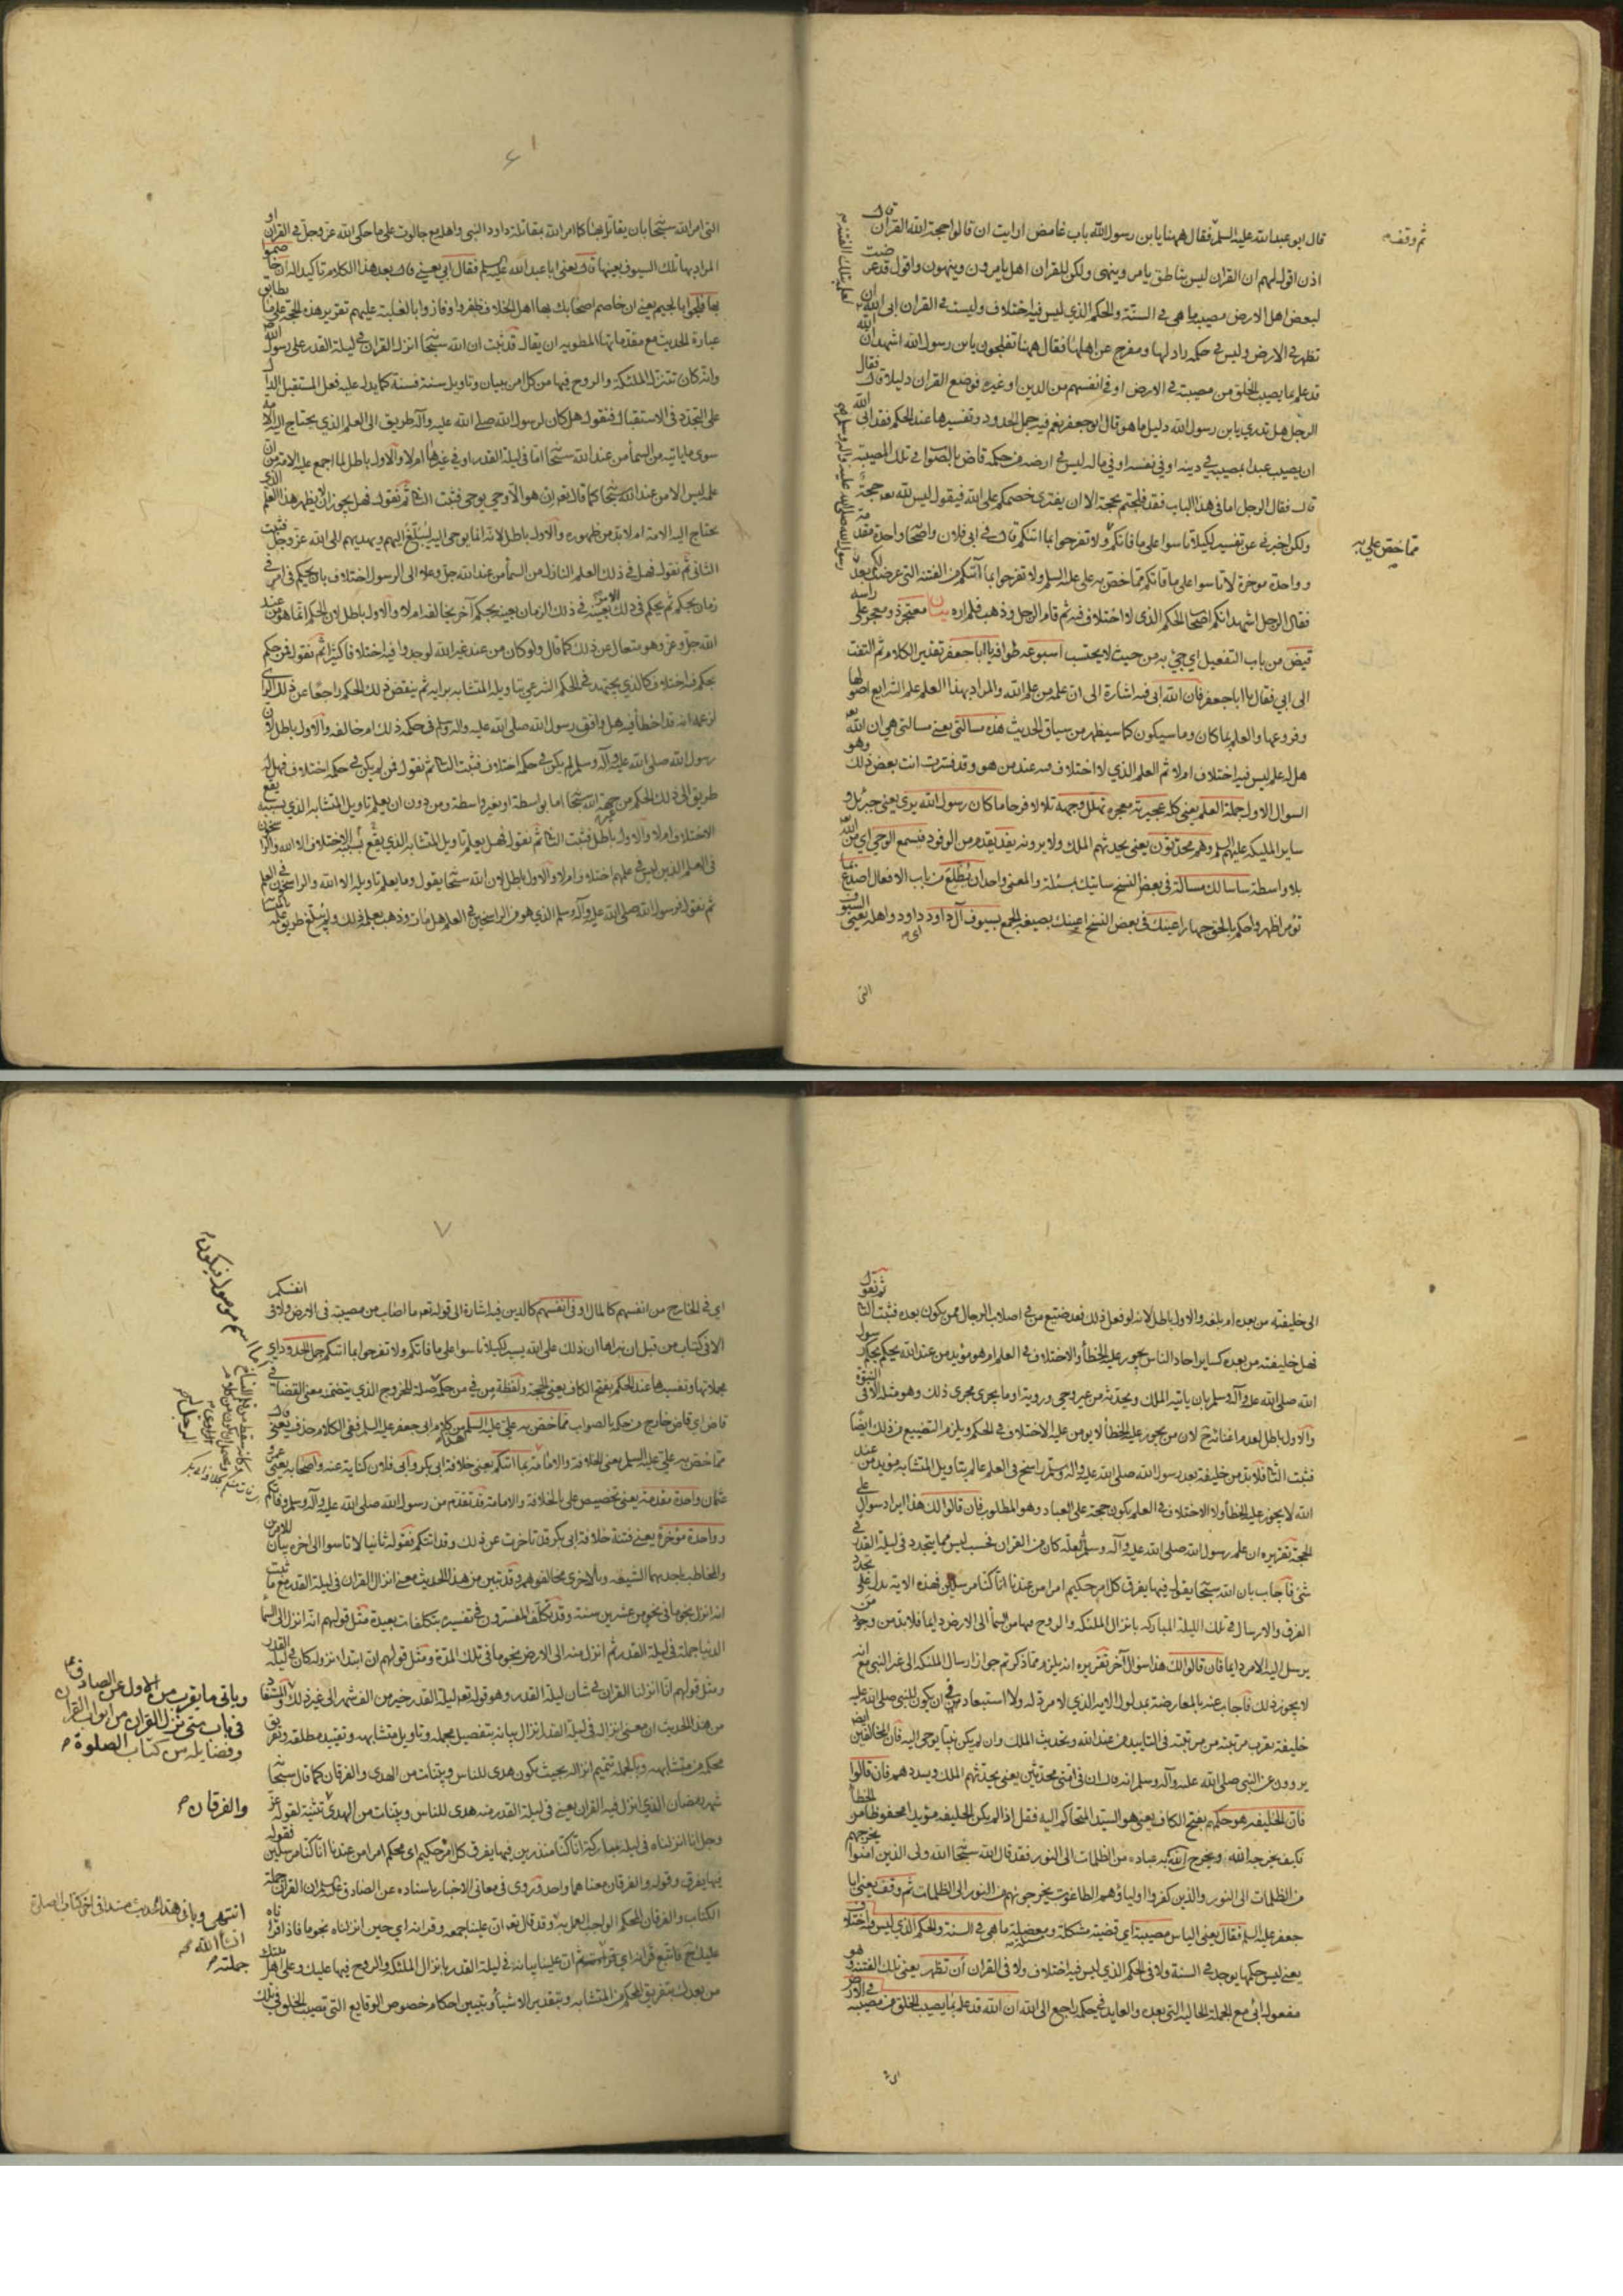 ثم وقف
قال ابو عبد الله عليه السلم فقال ههنا يا بن رسول الله باب غامض ارايت ان قالوا حجة الله القران قال
اذن اقول لهم ان القران ليس بناطق يامر وينهى ولكن للقران اهل يامرون وينهون واقول قد عرضت
لبعض اهل الارض مصيبة ما هي في السنة والحكم الذي ليس فيه اختلاف وليست في القران ابى الله ان
تظهر في الارض وليس في حكمه راد لها ومفرج عن اهلها فقال ههنا تفلجون يا بن رسول الله اشهد ان الله
قد علم بما يصيب الخلق من مصيبة في الارض او في انفسهم من الدين او غيره فوضع القران دليلا قال فقال
الرجل هل تدري يا بن رسول الله دليل ما هو قال ابو جعفر نعم فيه جمل الحدود وتفسيرها عند الحكم فقد ابى الله
ان يصيب عبدا بمصيبة في دينه او في نفسه او في ماله ليس في ارضه من حكمه قاض بالصواب في تلك المصيبة
قال فقال الرجل اما في هذا الباب فقد فلجتم بحجة الا ان يفتري خصمكم على الله فيقول ليس لله حجة
ولكن اخبرني عن تفسير لكيلا تاسوا على ما فاتكم ولا تفرحوا بما اتيكم قال في ابي فلان واصحابه واحدة مقدمة
مما خص علي به
وواحدة موخرة لا تاسوا على ما فاتكم مما خص به علي عليه السلم ولا تفرحوا بما آتيكم من الفتنة التي عرضت لكم بعد
فقال الرجل اشهد انكم اصحاب الحكم الذي لا اختلاف فيه ثم قام الرجل وذهب فلم اره بيان معتجر ذو معجر على راسه
قيض من باب التفعيل اي جيء به من حيث لا يحتسب اسبوعه طوافه يا ابا جعفر تقدير الكلام ثم التفت
الى ابي فقال يا ابا جعفر فان الله ابى فيه اشارة الى ان علمه من علم الله والمراد بهذا العلم علم الشرايع اصولها
وفروعها والعلم بما كان وما سيكون كما سيظهر من سياق الحديث هذه مسالتي يعني مسالتي هي ان الله
هل له علم ليس فيه اختلاف ام لا ثم العلم الذي لا اختلاف فيه عند من هو وقد فسرت انت بعض ذلك وهو
السوال الاول جملة العلم يعني كله عجيرته معجره تهلل وجهه تلألأ فرحا ما كان رسول الله يرى يعني جبرئيل و
ساير المليكة عليهم السلم وهم محدثون يعني يحدثهم الملك ولا يرونه يفد يقدم من الوفود فيسمع الوحي اي من الله
بلا واسطة ساسالك مسالة في بعض النسخ ساتيك بمسئلة والمعنى واحد ان يطلع من باب الافعال اصدع بما
تؤمر اظهر واحكم بالحق جهارا عينك في بعض النسخ اعينك بصيغة الجمع بسيوف آل داود داود واهله يعني السيوف
التي
۶
التي امر الله سبحانه بان يقاتل بها كما امر الله بمقاتلة داود النبي واهله مع جالوت على ما حكى الله عز وجل في القران او
المراد بها تلك السيوف بعينها قال يعني ابا عبد الله عليه السلم فقال ابي يعني قال بعد هذا الكلام تاكيدا له ان خاصموا
بها فلجوا بالجيم يعني ان خاصم اصحابك بها اهل الخلاف ظفروا وفازوا بالغلبة عليهم تقرير هذه الحجة على ما يطابق
عبارة الحديث مع مقدماتها المطوية ان يقال قد ثبت ان الله سبحانه انزل القران في ليلة القدر على رسول الله
وانه كان تتنزل الملئكة والروح فيها من كل امر ببيان وتاويل سنة فسنة كما يدل عليه فعل المستقبل الدال
على التجدد في الاستقبال فنقول هل كان لرسول الله صلى الله عليه وآله طريق الى العلم الذي يحتاج اليه الامة
سوى ما ياتيه من السماء من عند الله سبحانه اما في ليلة القدر او في غيرها ام لا والاول باطل لما اجمع عليه الامة من ان
علمه ليس الا من عند الله سبحانه كما قال تعالى ان هو الا وحي يوحى فثبت الثاني ثم نقول فهل يجوز ان لا يظهر هذا العلم الذي
يحتاج اليه الامة ام لا بد من ظهوره والاول باطل لانه انما يوحى اليه ليبلغ اليهم ويهديهم الى الله عز وجل فثبت
الثاني ثم نقول فهل في ذلك العلم النازل من السماء من عند الله جل وعلا الى الرسول اختلاف بان يحكم في امر في
زمان بحكم ثم يحكم في ذلك الامر بعينه في ذلك الزمان بعينه بحكم آخر يخالفه ام لا والاول باطل لان الحكم انما هو من عند
الله جل وعز وهو متعال عن ذلك كما قال ولو كان من عند غير الله لوجدوا فيه اختلافا كثيرا ثم نقول فمن حكم
بحكم فيه اختلاف كالذي يجتهد في الحكم الشرعي بتاويله المتشابه برايه ثم ينقض ذلك الحكم راجعا عن ذلك الراي
لزعمه انه قد اخطا فيه هل وافق رسول الله صلى الله عليه واله وسلم في حكمه ذلك ام خالفه والاول باطل لان
رسول الله صلى الله عليه وآله وسلم لم يكن في حكمه اختلاف فثبت الثاني ثم نقول فمن لم يكن في حكمه اختلاف فهل له
طريق الى ذلك الحكم من جهة الله سبحانه اما بواسطة او بغير واسطة ومن دون ان يعلم تاويل المتشابه الذي بسببه يقع
الاختلاف ام لا والاول باطل فثبت الثاني ثم نقول فهل يعلم تاويل المتشابه الذي يقع بسببه الاختلاف الا الله والراسخون
في العلم الذين ليس في علمهم اختلاف ام لا والاول باطل لان الله سبحانه يقول وما يعلم تاويله الا الله والراسخون في العلم
ثم نقول فرسول الله صلى الله عليه وآله وسلم الذي هو من الراسخين في العلم هل مات وذهب بعلمه ذلك ولم يبلغ طريق علمه بالمتشابه
الى خليفته من بعده ام بلغه والاول باطل لانه لو فعل ذلك فقد ضيع من في اصلاب الرجال ممن يكون بعده فثبت الثاني ثم نقول
فهل خليفته من بعده كساير احاد الناس يجوز عليه الخطأ والاختلاف في العلم ام هو مؤيد من عند الله يحكم بحكم رسول
الله صلى الله عليه وآله وسلم بان ياتيه الملك ويحدثه من غير وحي ورؤية او ما يجري مجرى ذلك وهو مثله الا في النبوة
والاول باطل لعدم اغنائه ح لان من يجوز عليه الخطأ لا يومن عليه الاختلاف في الحكم ويلزم التضييع من ذلك ايضا
فثبت الثاني فلا بد من خليفة بعد رسول الله صلى الله عليه واله وسلم راسخ في العلم عالم بتاويل المتشابه مؤيد من عند
الله لا يجوز عليه الخطأ ولا الاختلاف في العلم يكون حجة على العباد وهو المطلوب فان قالوا لك هذا ايراد سوال على
الحجة تقريره ان علم رسول الله صلى الله عليه وآله وسلم لعله كان من القران فحسب ليس مما يتجدد في ليلة القدر فيه
شيء فاجاب بان الله سبحانه يقول فيها يفرق كل امر حكيم امرا من عندنا انا كنا مرسلين فهذه الاية يدل على تجدد
الفرق والارسال في تلك الليلة المباركة بانزال الملئكة والروح فيها من السماء الى الارض دايما فلا بد من وجود من
يرسل اليه الامر دايما فان قالوا لك هذا سوال آخر تقريره انه يلزم مما ذكرتم جواز ارسال الملئكة الى غير النبي مع انه
لا يجوز ذلك فاجاب عنه بالمعارضة بمدلول الاية الذي لا مرد له ولا استبعاد في ان يكون للنبي صلى الله عليه
خليفة يقرب مرتبته من مرتبته في التاييد من عند الله وتحديث الملك وان لم يكن نبيا يوحى اليه فان المخالفين ايضا
يروون عن النبي صلى الله عليه وآله وسلم انه قال ان في امتي محدثين يعني يحدثهم الملك ويسددهم فان قالوا
فان الخليفة هو حكمهم بفتح الكاف يعني هو السيد المتحاكم اليه فقل اذا لم يكن الخليفة مؤيدا محفوظا من الخطأ
فكيف يخرجه الله ويخرج به عباده من الظلمات الى النور فقد قال الله سبحانه الله ولي الذين امنوا يخرجهم
من الظلمات الى النور والذين كفروا اولياؤهم الطاغوت يخرجونهم من النور الى الظلمات ثم وقف يعني ابا
جعفر عليه السلم فقال يعني الياس مصيبة اي قضية مشكلة ومعضلة ما هي في السنة والحكم الذي ليس فيه اختلاف
يعني ليس حكمها يوجد في السنة ولا في الحكم الذي ليس فيه اختلاف ولا في القران ان تظهر يعني تلك الفتنة وهو
مفعول ابى مع الجملة الحالية التي بعده والعايد في حكمه راجع الى الله ان الله قد علم بما يصيب الخلق من مصيبة في الارض
اي
۷
اي في الخارج من انفسهم كالمال او في انفسهم كالدين فيه اشارة الى قوله تعالى ما اصاب من مصيبة في الارض ولا في انفسكم
الا في كتاب من قبل ان نبراها ان ذلك على الله يسير لكيلا تاسوا على ما فاتكم ولا تفرحوا بما اتيكم جمل الحدود اي
مجملاتها وتفسيرها عند الحكم بفتح الكاف يعني الحجة ولفظة من في من حكمه صلة للخروج الذي يتضمنه معنى القضاء في
قاض اي قاض خارج من حكمه بالصواب مما خص به علي عليه السلم من كلام ابي جعفر عليه السلم ففي الكلام حذف يعني قال
مما خص به علي عليه السلم يعني الخلافة والامامة بما اتيكم يعني خلافة ابي بكر وابي فلان كناية عنه واصحابه يعني عمر و
عثمان واحدة مقدمة يعني تخصيص علي بالخلافة والامامة قد تقدم من رسول الله صلى الله عليه وآله وسلم وفاتكم
وواحدة مؤخرة يعني فتنة خلافة ابي بكر قد تاخرت عن ذلك وقد اتتكم فقوله ثانيا لا تاسوا الى اخره بيان للامرين
والمخاطب باحديهما الشيعة وبالاخرى مخالفوهم وقد تبين من هذا الحديث معنى انزال القران في ليلة القدر مع ما ثبت
انه انزل نجوما في نحو من عشرين سنة وقد تكلف المفسرون في تفسيره بتكلفات بعيدة مثل قولهم انه انزل الى السماء
الدنيا جملة في ليلة القدر ثم انزل منه الى الارض نجوما في تلك المدة ومثل قولهم ان ابتداء نزوله كان في ليلة القدر
ومثل قولهم انا انزلنا القران في شان ليلة القدر وهو قوله تعالى ليلة القدر خير من الف شهر الى غير ذلك والمستفاد
من هذا الحديث ان معنى انزاله في ليلة القدر انزال بيانه بتفصيل مجمله وتاويل متشابهه وتقييد مطلقه وتفريق
محكمه من متشابهه وبالجملة تتميم انزاله بحيث يكون هدى للناس وبينات من الهدى والفرقان كما قال سبحانه
شهر رمضان الذي انزل فيه القران يعني في ليلة القدر منه هدى للناس وبينات من الهدى تثنية لقوله عز
والفرقان
وجل انا انزلناه في ليلة مباركة انا كنا منذرين فيها يفرق كل امر حكيم اي محكم امرا من عندنا انا كنا مرسلين فقوله
فيها يفرق وقوله والفرقان معناهما واحد وروي في معاني الاخبار باسناده عن الصادق عليه السلم ان القران جملة
الكتاب والفرقان المحكم الواجب العمل به وقد قال تعالى ان علينا جمعه وقرانه اي حين انزلناه نجوما فاذا قراناه
عليك ح فاتبع قرانه اي جملته ثم ان علينا بيانه في ليلة القدر بانزال الملئكة والروح فيها عليك وعلى اهل بيتك
من بعدك بتفريق المحكم من المتشابه وبتقدير الاشياء وتبيين احكام خصوص الوقايع التي تصيب الخلق في تلك
وياتي ما يقرب من الاول عن الصادق ع
في باب متى نزل القران من ابواب القران
وفضايله من كتاب الصلوة
انتهى وياتي هذا الحديث مسندا في اخر كتاب الصلوة
انشاء الله
جملته